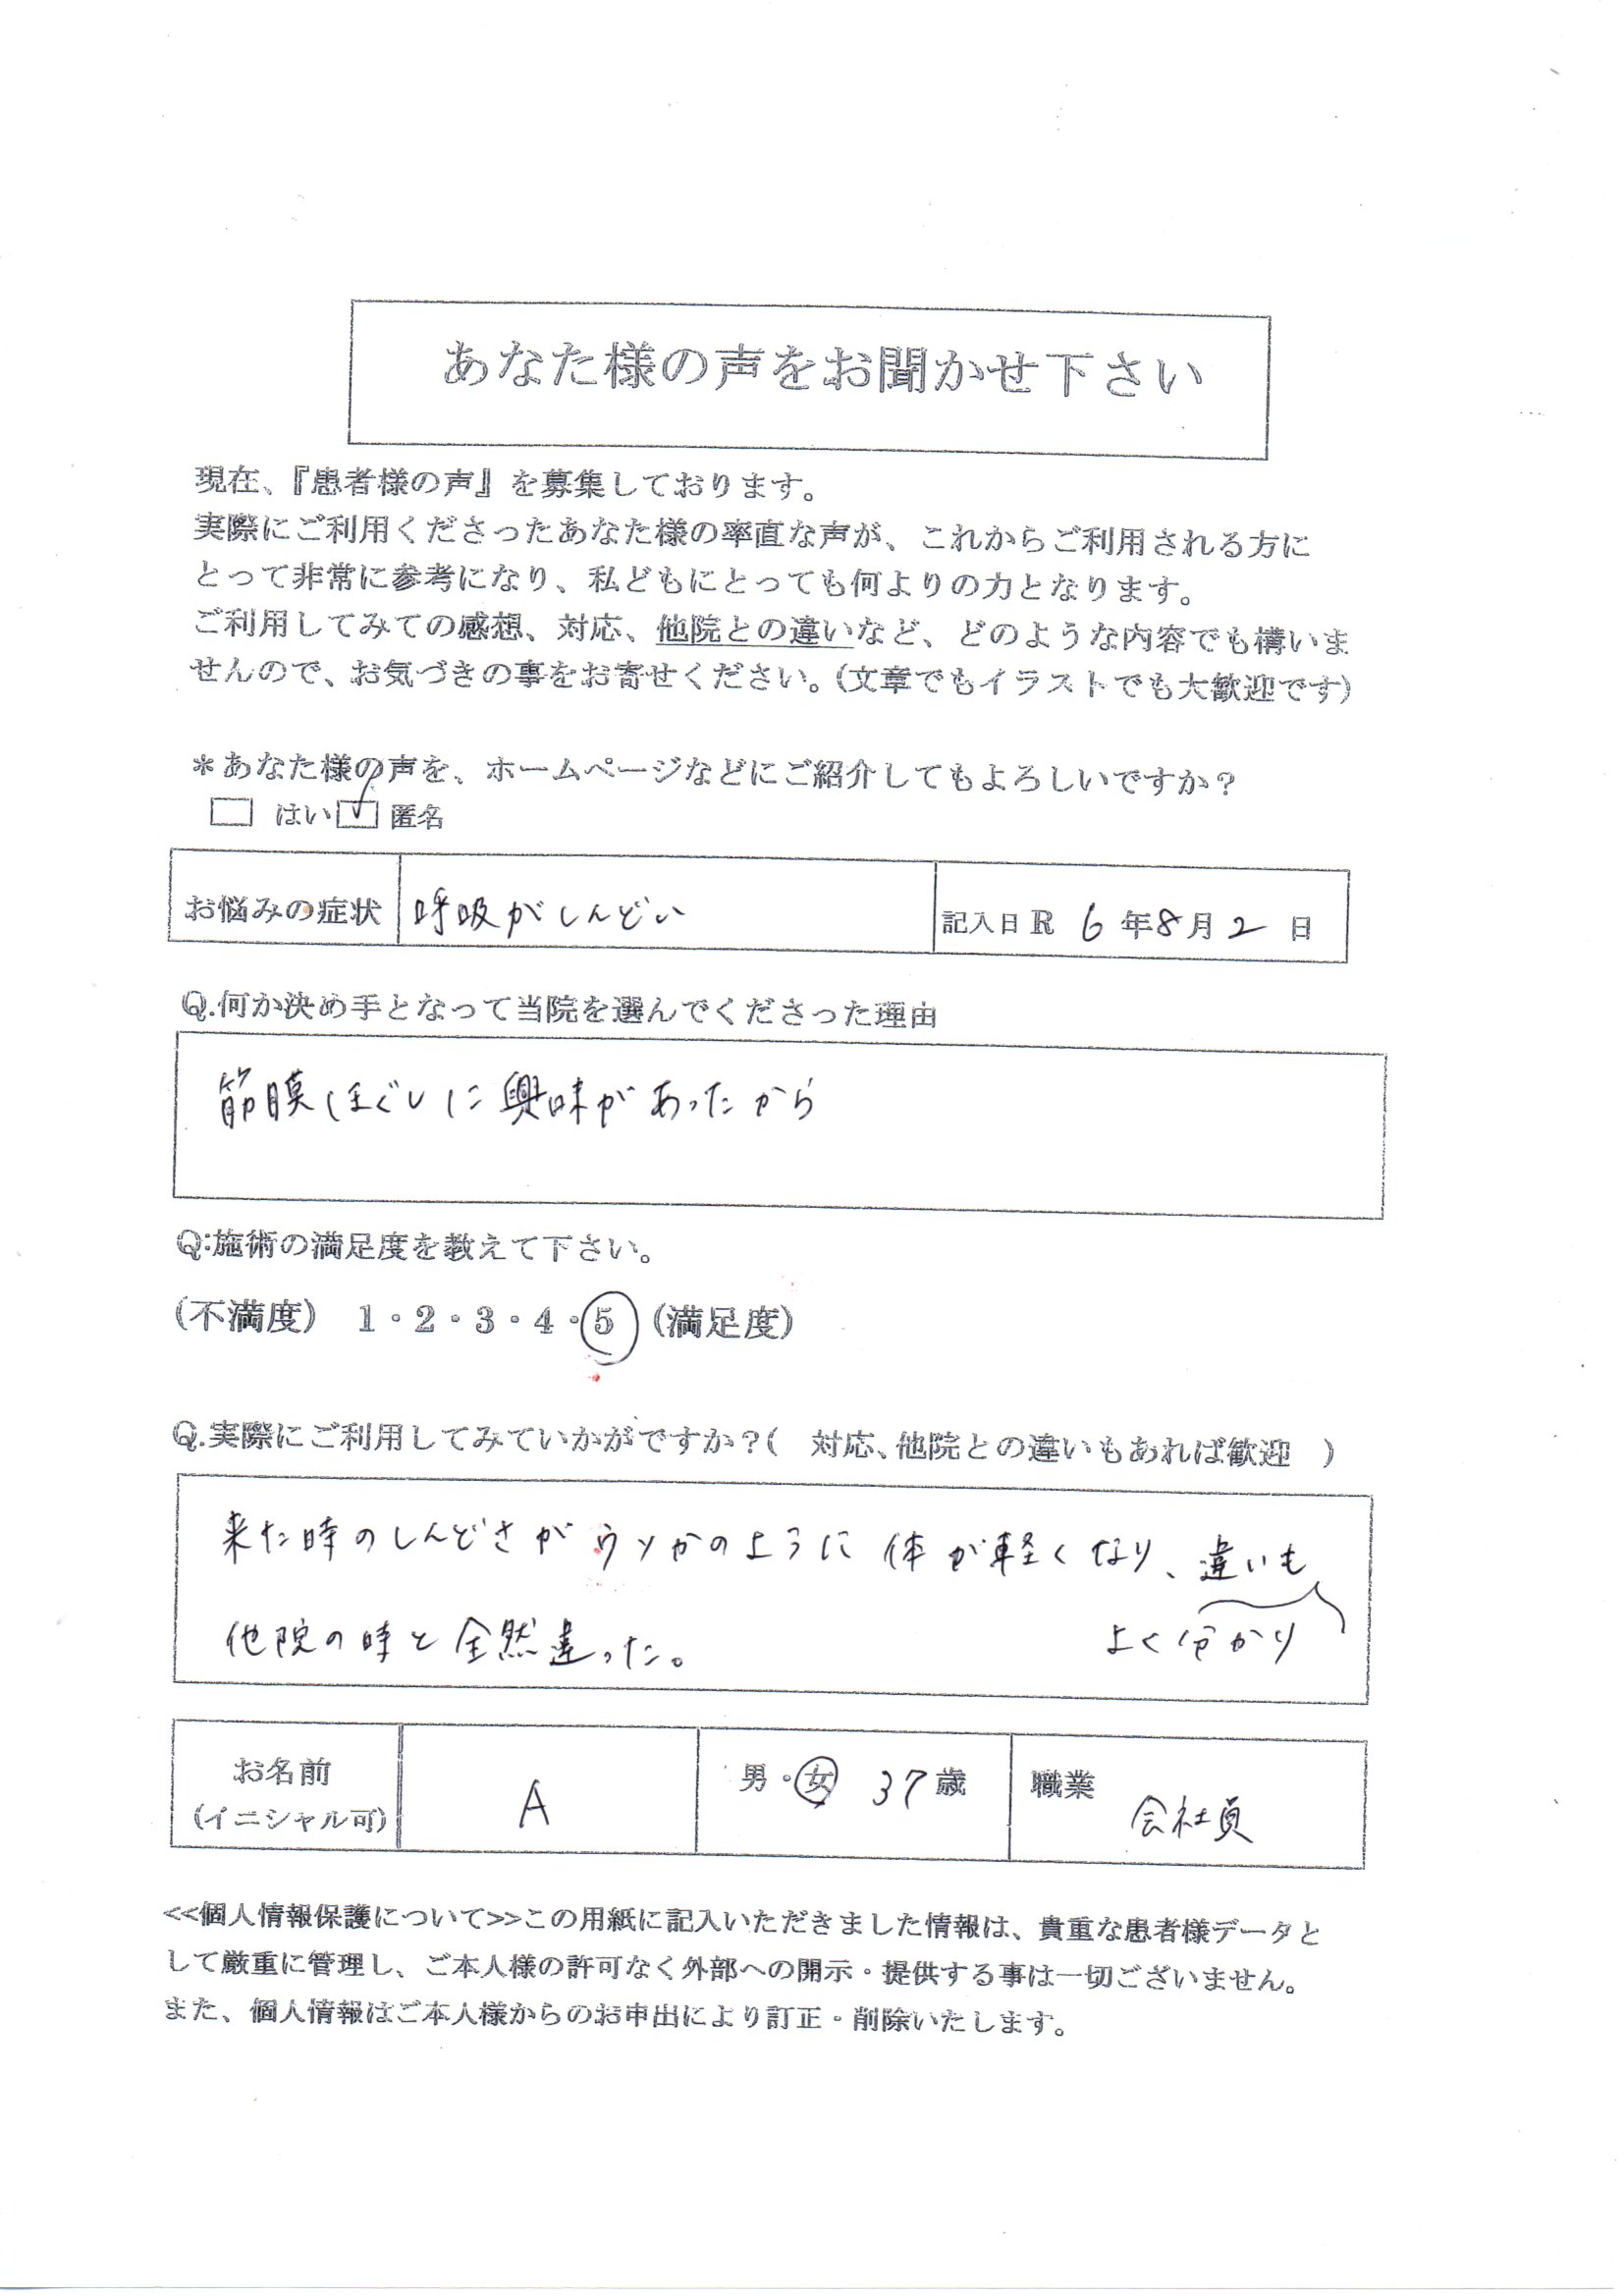 あなた様の声をお聞かせ下さい
現在、『患者様の声』を募集しております。
実際にご利用くださったあなた様の率直な声が、これからご利用される方に
とって非常に参考になり、私どもにとっても何よりの力となります。
ご利用してみての感想、対応、他院との違いなど、どのような内容でも構いま
せんので、お気づきの事をお寄せください。(文章でもイラストでも大歓迎です)
*あなた様の声を、ホームページなどにご紹介してもよろしいですか?
はい 匿名
お悩みの症状 呼吸がしんどい 記入日 R 6 年 8 月 2 日
Q.何か決め手となって当院を選んでくださった理由
筋膜ほぐしに興味があったから
Q:施術の満足度を教えて下さい。
(不満度) 1・2・3・4・5 (満足度)
Q.実際にご利用してみていかがですか?( 対応、他院との違いもあれば歓迎 )
来た時のしんどさがウソかのように体が軽くなり、違いも
よく分かり
他院の時と全然違った。
お名前 A 男・女 37歳 職業 会社員
(イニシャル可)
<<個人情報保護について>>この用紙に記入いただきました情報は、貴重な患者様データと
して厳重に管理し、ご本人様の許可なく外部への開示・提供する事は一切ございません。
また、個人情報はご本人様からのお申出により訂正・削除いたします。